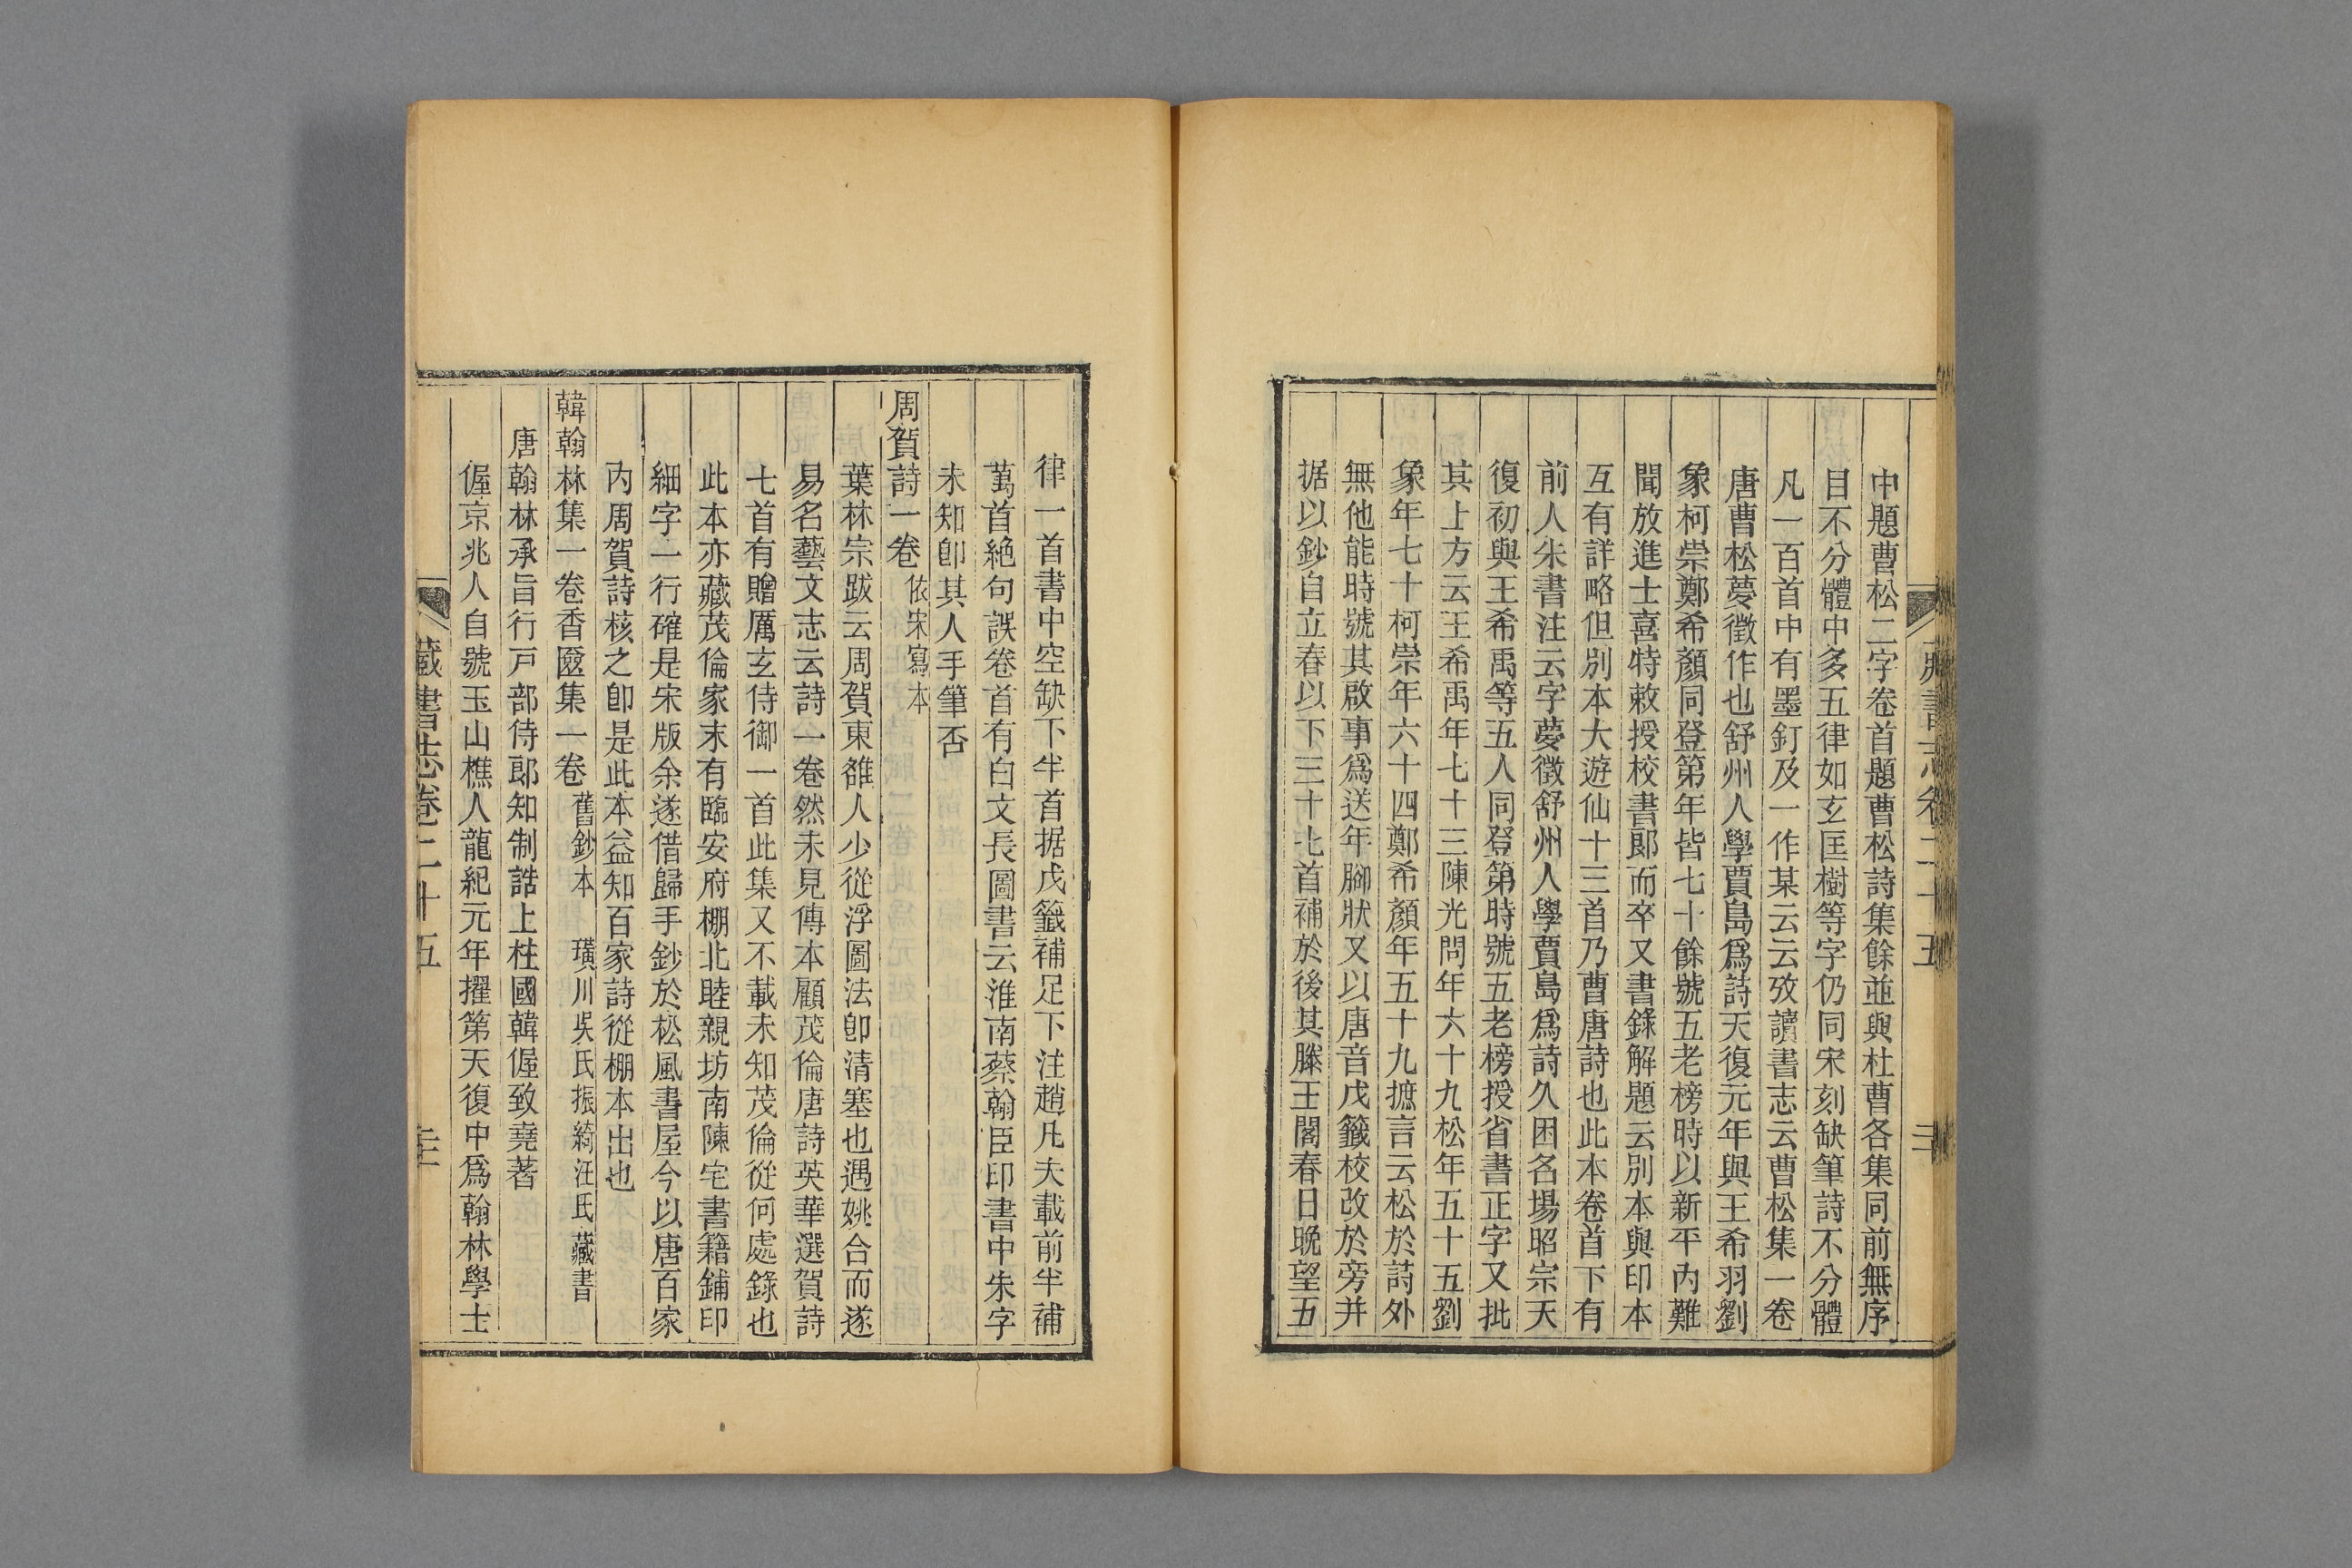 中題曹松二字卷首題曹松詩集餘並與杜曹各集同前無序
目不分體中多五律如玄匡樹等字仍同宋刻缺筆詩不分體
凡一百首中有墨釘及一作某云云攷讀書志云曹松集一卷
唐曹松夢徵作也舒州人學賈島爲詩天復元年與王希羽劉
象柯崇鄭希顏同登第年皆七十餘號五老榜時以新平內難
聞放進士喜特敕授校書郞而卒又書錄解題云別本與印本
互有詳略但別本大遊仙十三首乃曹唐詩也此本卷首下有
前人朱書注云字夢徵舒州人學賈島爲詩久困名場昭宗天
復初與王希禹等五人同登第時號五老榜授省書正字又批
其上方云王希禹年七十三陳光問年六十九松年五十五劉
象年七十柯崇年六十四鄭希顏年五十九摭言云松於詩外
無他能時號其啟事爲送年腳狀又以唐音戊籤校改於旁并
据以鈔自立春以下三十七首補於後其滕王閣春日晚望五
律一首書中空缺下半首据戊籤補足下注趙凡夫載前半補
萬首絕句誤卷首有白文長圖書云淮南蔡翰臣印書中朱字
未知卽其人手筆否
周賀詩一卷 依宋寫本
葉林宗跋云周賀東雒人少從浮圖法卽清塞也遇姚合而遂
易名藝文志云詩一卷然未見傳本顧茂倫唐詩英華選賀詩
七首有贈厲玄侍御一首此集又不載未知茂倫從何處錄也
此本亦藏茂倫家末有臨安府棚北睦親坊南陳宅書籍鋪印
細字一行確是宋版余遂借歸手鈔於松風書屋今以唐百家
內周賀詩核之卽是此本益知百家詩從棚本出也
韓翰林集一卷香匳集一卷 舊鈔本 璜川吳氏振綺汪氏藏書
唐翰林承旨行戸部侍郞知制誥上柱國韓偓致堯著
偓京兆人自號玉山樵人龍紀元年擢第天復中爲翰林學士
藏書志卷二十五